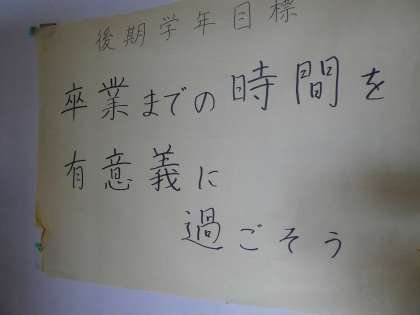 後期学年目標
卒業までの時間を
有意義に
過ごそう